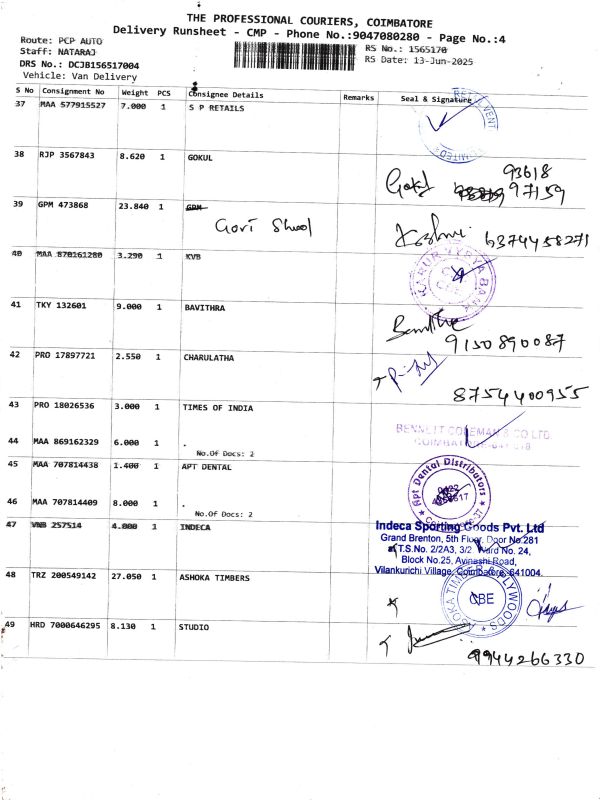 THE PROFESSIONAL COURIERS, COIMBATORE
Delivery Runsheet - CMP - Phone No.:9047080280 - Page No.:4
Route: PCP AUTO
RS No.: 1565170
Staff: NATARAJ
RS Date: 13-Jun-2025
DRS No.: DCJB156517004
Vehicle: Van Delivery
S No Consignment No Weight PCS Consignee Details Remarks Seal & Signature
37 MAA 577915527 7.000 1 S P RETAILS
38 RJP 3567843 8.620 1 GOKUL
Gokul 93618
97159
39 GPM 473868 23.840 1 GPM
Gori
6374458271
40 MAA 870161280 3.290 1 KVB
KARUR VYSYA BANK
41 TKY 132601 9.000 1 BAVITHRA
9150890087
42 PRO 17897721 2.550 1 CHARULATHA
8754400955
43 PRO 18026536 3.000 1 TIMES OF INDIA
BENNETT COLEMAN & CO LTD.
44 MAA 869162329 6.000 1 .
No.Of Docs: 2
45 MAA 707814438 1.400 1 APT DENTAL
Apt Dental Distributors
46 MAA 707814409 8.000 1 .
No.Of Docs: 2
47 VNB 257514 4.000 1 INDECA
Indeca Sporting Goods Pvt. Ltd
Grand Brenton, 5th Floor, Door No.281
T.S.No. 2/2A3, 3/2. Ward No. 24,
Block No.25, Avinashi Road,
Vilankurichi Village, Coimbatore, 641004.
48 TRZ 200549142 27.050 1 ASHOKA TIMBERS
CBE
49 HRD 7000646295 8.130 1 STUDIO
9944266330